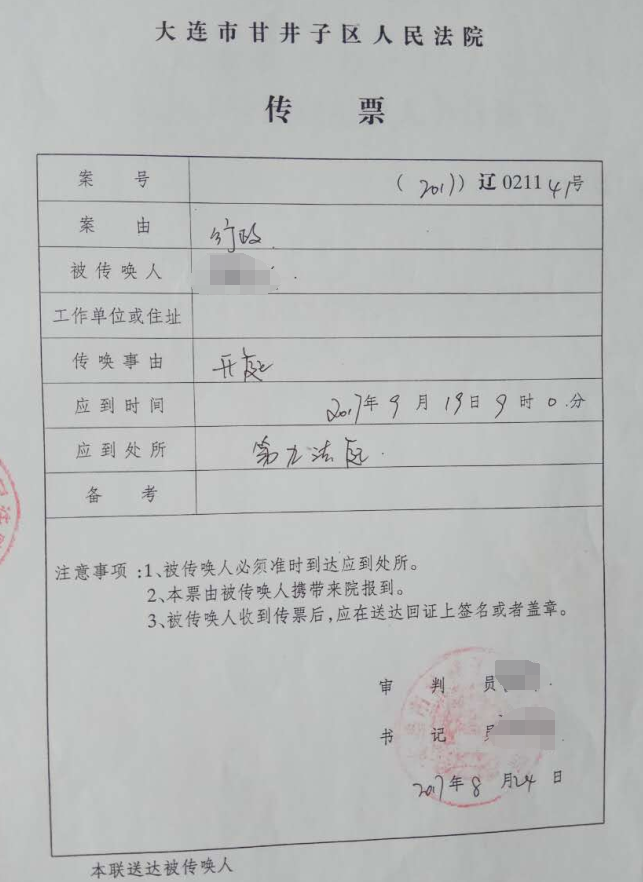 大连市甘井子区人民法院
传票
案号 (2017)辽0211 41号
案由 行政
被传唤人
工作单位或住址
传唤事由 开庭
应到时间 2017年9月19日9时0分
应到处所 第九法庭
备考
注意事项:1、被传唤人必须准时到达应到处所。
2、本票由被传唤人携带来院报到。
3、被传唤人收到传票后,应在送达回证上签名或者盖章。
审判员
书记员
2017年8月24日
本联送达被传唤人